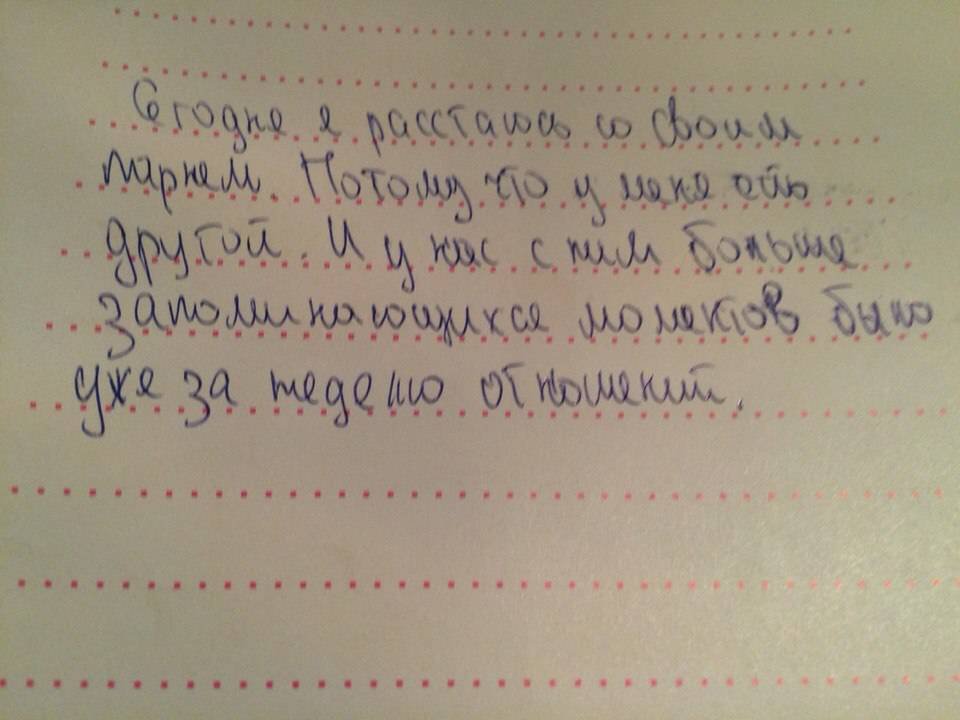 Сегодня я расстаюсь со своим
парнем. Потому что у меня есть
другой. И у нас с ним больше
запоминающихся моментов было
уже за неделю отношений.